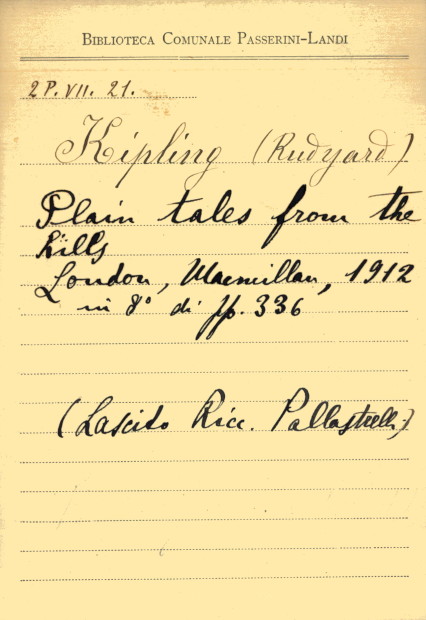 BIBLIOTECA COMUNALE PASSERINI-LANDI
2P. VII. 21.
Kipling (Rudyard)
Plain tales from the
hills
London, Macmillan, 1912
in 8° di pp. 336
(Lascito Ricc. Pallastrelli)